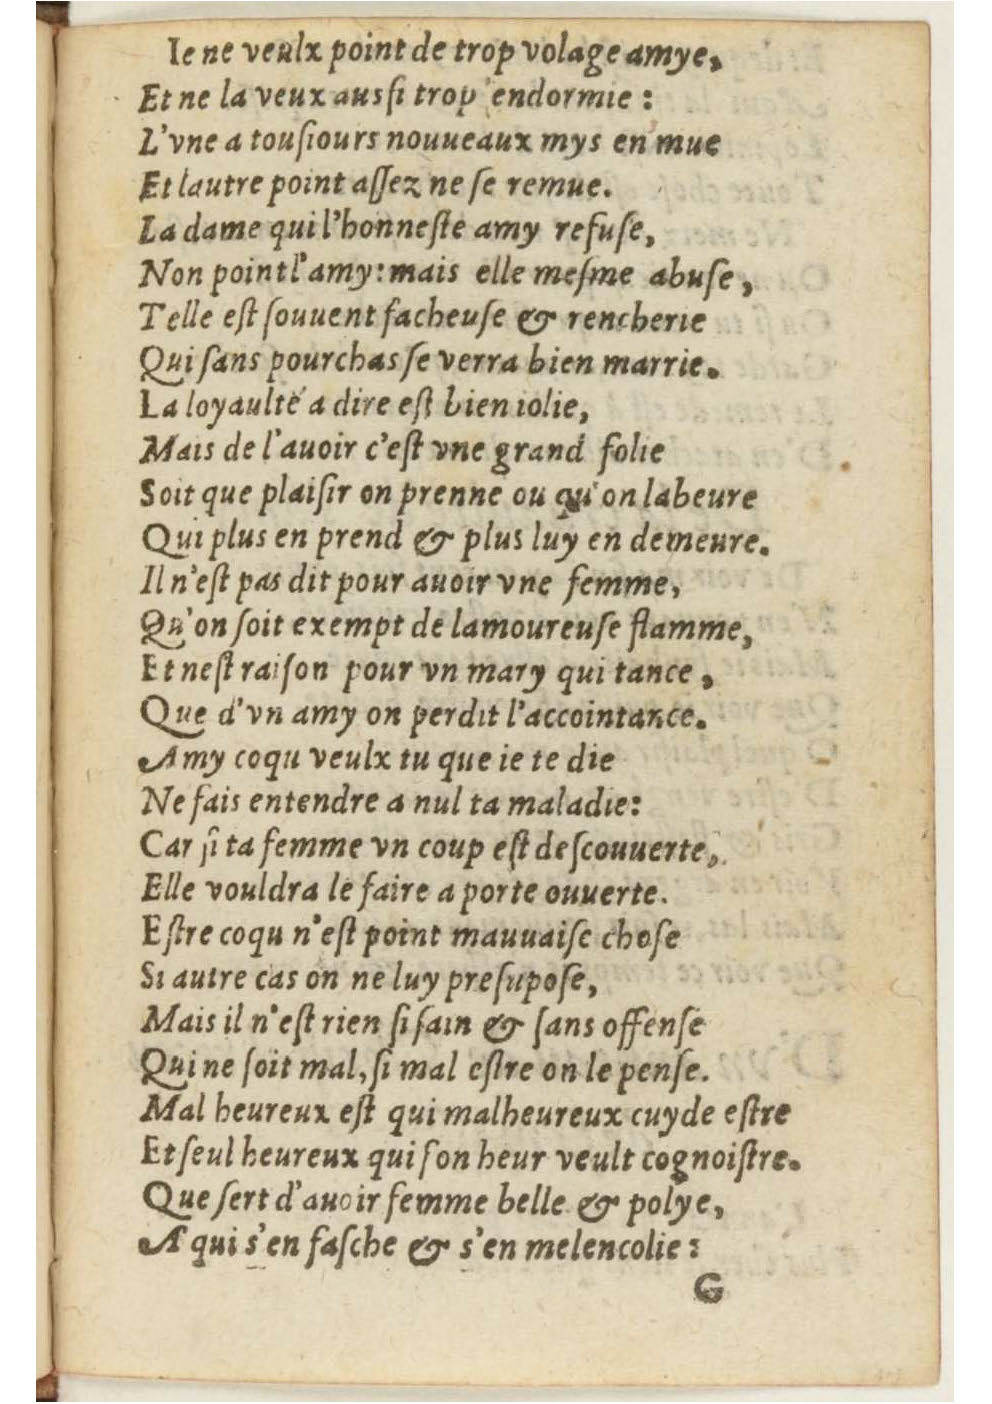 Ie ne veulx point de trop volage amye,
Et ne la veux ausſi trop endormie :
L'vne a touſiours nouueaux mys en mue
Et lautre point aſſez ne ſe remue.
La dame qui l'honneſte amy refuſe,
Non point l'amy: mais elle meſme abuſe,
Telle eſt ſouuent facheuſe & rencherie
Qui ſans pourchas ſe verra bien marrie.
La loyaulté a dire eſt bien iolie,
Mais de l'auoir c'eſt vne grand folie
Soit que plaiſir on prenne ou qu'on labeure
Qui plus en prend & plus luy en demeure.
Il n'eſt pas dit pour auoir vne femme,
Qu'on ſoit exempt de lamoureuſe flamme,
Et neſt raiſon pour vn mary qui tance,
Que d'vn amy on perdit l'accointance.
Amy coqu veulx tu que ie te die
Ne fais entendre a nul ta maladie:
Car ſi ta femme vn coup eſt deſcouuerte,
Elle vouldra le faire a porte ouuerte.
Eſtre coqu n'eſt point mauuaiſe choſe
Si autre cas on ne luy preſupoſe,
Mais il n'eſt rien ſi ſain & ſans offenſe
Qui ne ſoit mal, ſi mal eſtre on le penſe.
Mal heureux eſt qui malheureux cuyde eſtre
Et ſeul heureux qui ſon heur veult cognoiſtre.
Que ſert d'auoir femme belle & polye,
A qui s'en faſche & s'en melencolie:
G